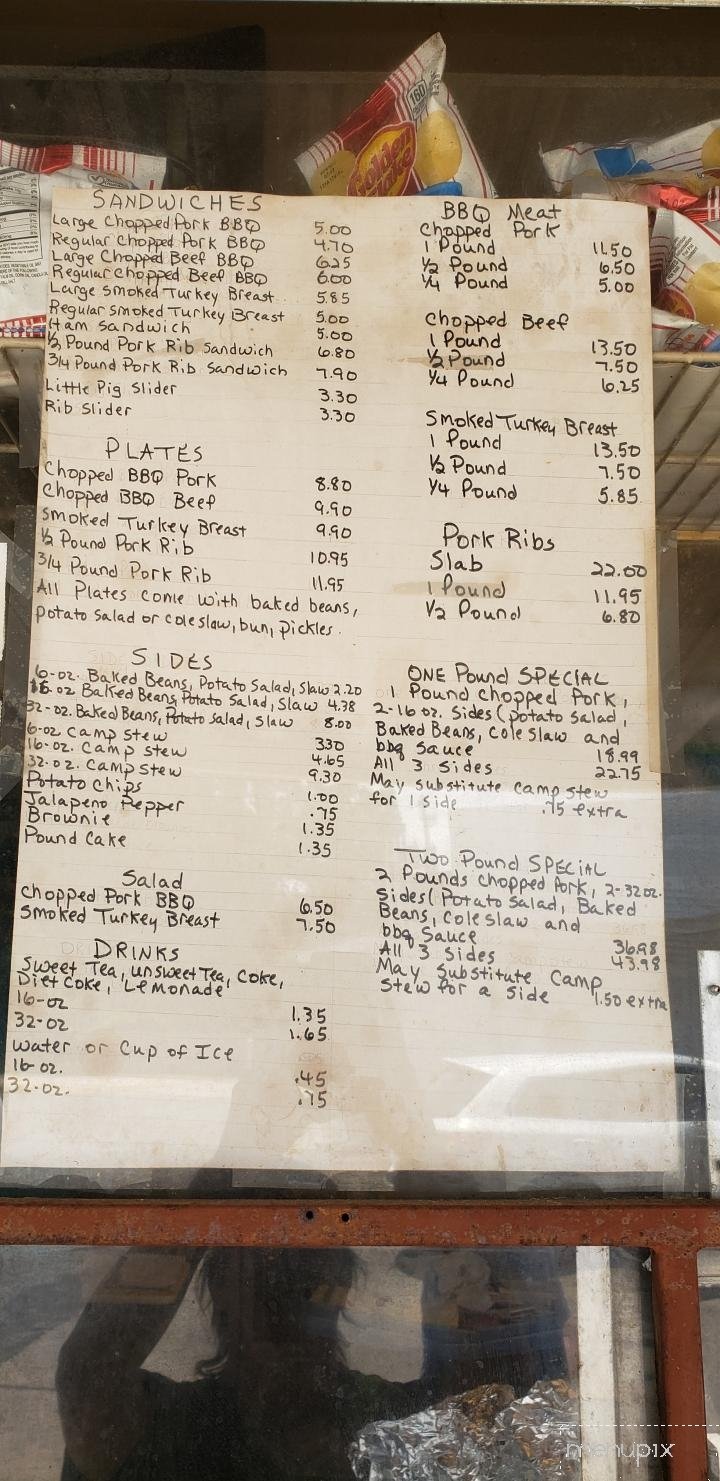 160
Golden
Flake
SANDWICHES
Large Chopped Pork BBQ 5.00
Regular Chopped Pork BBQ 4.70
Large Chopped Beef BBQ 6.25
Regular Chopped Beef BBQ 6.00
Large Smoked Turkey Breast 5.85
Regular Smoked Turkey Breast 5.00
Ham Sandwich 5.00
1/2 Pound Pork Rib Sandwich 6.80
3/4 Pound Pork Rib Sandwich 7.90
Little Pig Slider 3.30
Rib Slider 3.30
PLATES
Chopped BBQ Pork 8.80
Chopped BBQ Beef 9.90
Smoked Turkey Breast 9.90
1/2 Pound Pork Rib 10.95
3/4 Pound Pork Rib 11.95
All Plates come with baked beans,
potato salad or coleslaw, bun, pickles.
SIDES
6-oz. Baked Beans, Potato Salad, Slaw 2.20
16-oz Baked Beans, Potato Salad, Slaw 4.38
32-oz. Baked Beans, Potato Salad, Slaw 8.00
6-oz Camp Stew 330
16-oz. Camp Stew 4.65
32-oz. Camp Stew 9.30
Potato Chips 1.00
Jalapeno Pepper .75
Brownie 1.35
Pound Cake 1.35
Salad
Chopped Pork BBQ 6.50
Smoked Turkey Breast 7.50
DRINKS
Sweet Tea, Unsweet Tea, Coke,
Diet Coke, Lemonade
16-oz 1.35
32-oz 1.65
Water or Cup of Ice
16-oz. .45
32-oz. .75
BBQ Meat
Chopped Pork
1 Pound 11.50
1/2 Pound 6.50
1/4 Pound 5.00
Chopped Beef
1 Pound 13.50
1/2 Pound 7.50
1/4 Pound 6.25
Smoked Turkey Breast
1 Pound 13.50
1/2 Pound 7.50
1/4 Pound 5.85
Pork Ribs
Slab 22.00
1 Pound 11.95
1/2 Pound 6.80
ONE Pound SPECIAL
1 Pound Chopped Pork,
2-16 oz. Sides (potato salad,
Baked Beans, Cole Slaw and
bbq Sauce 18.99
All 3 Sides 22.75
May substitute camp stew
for 1 side .75 extra
Two Pound SPECIAL
2 Pounds Chopped Pork, 2-32oz.
Sides (Potato Salad, Baked
Beans, Cole Slaw and
bbq Sauce 36.98
All 3 Sides 43.98
May Substitute Camp
Stew for a Side 1.50 extra
menupix